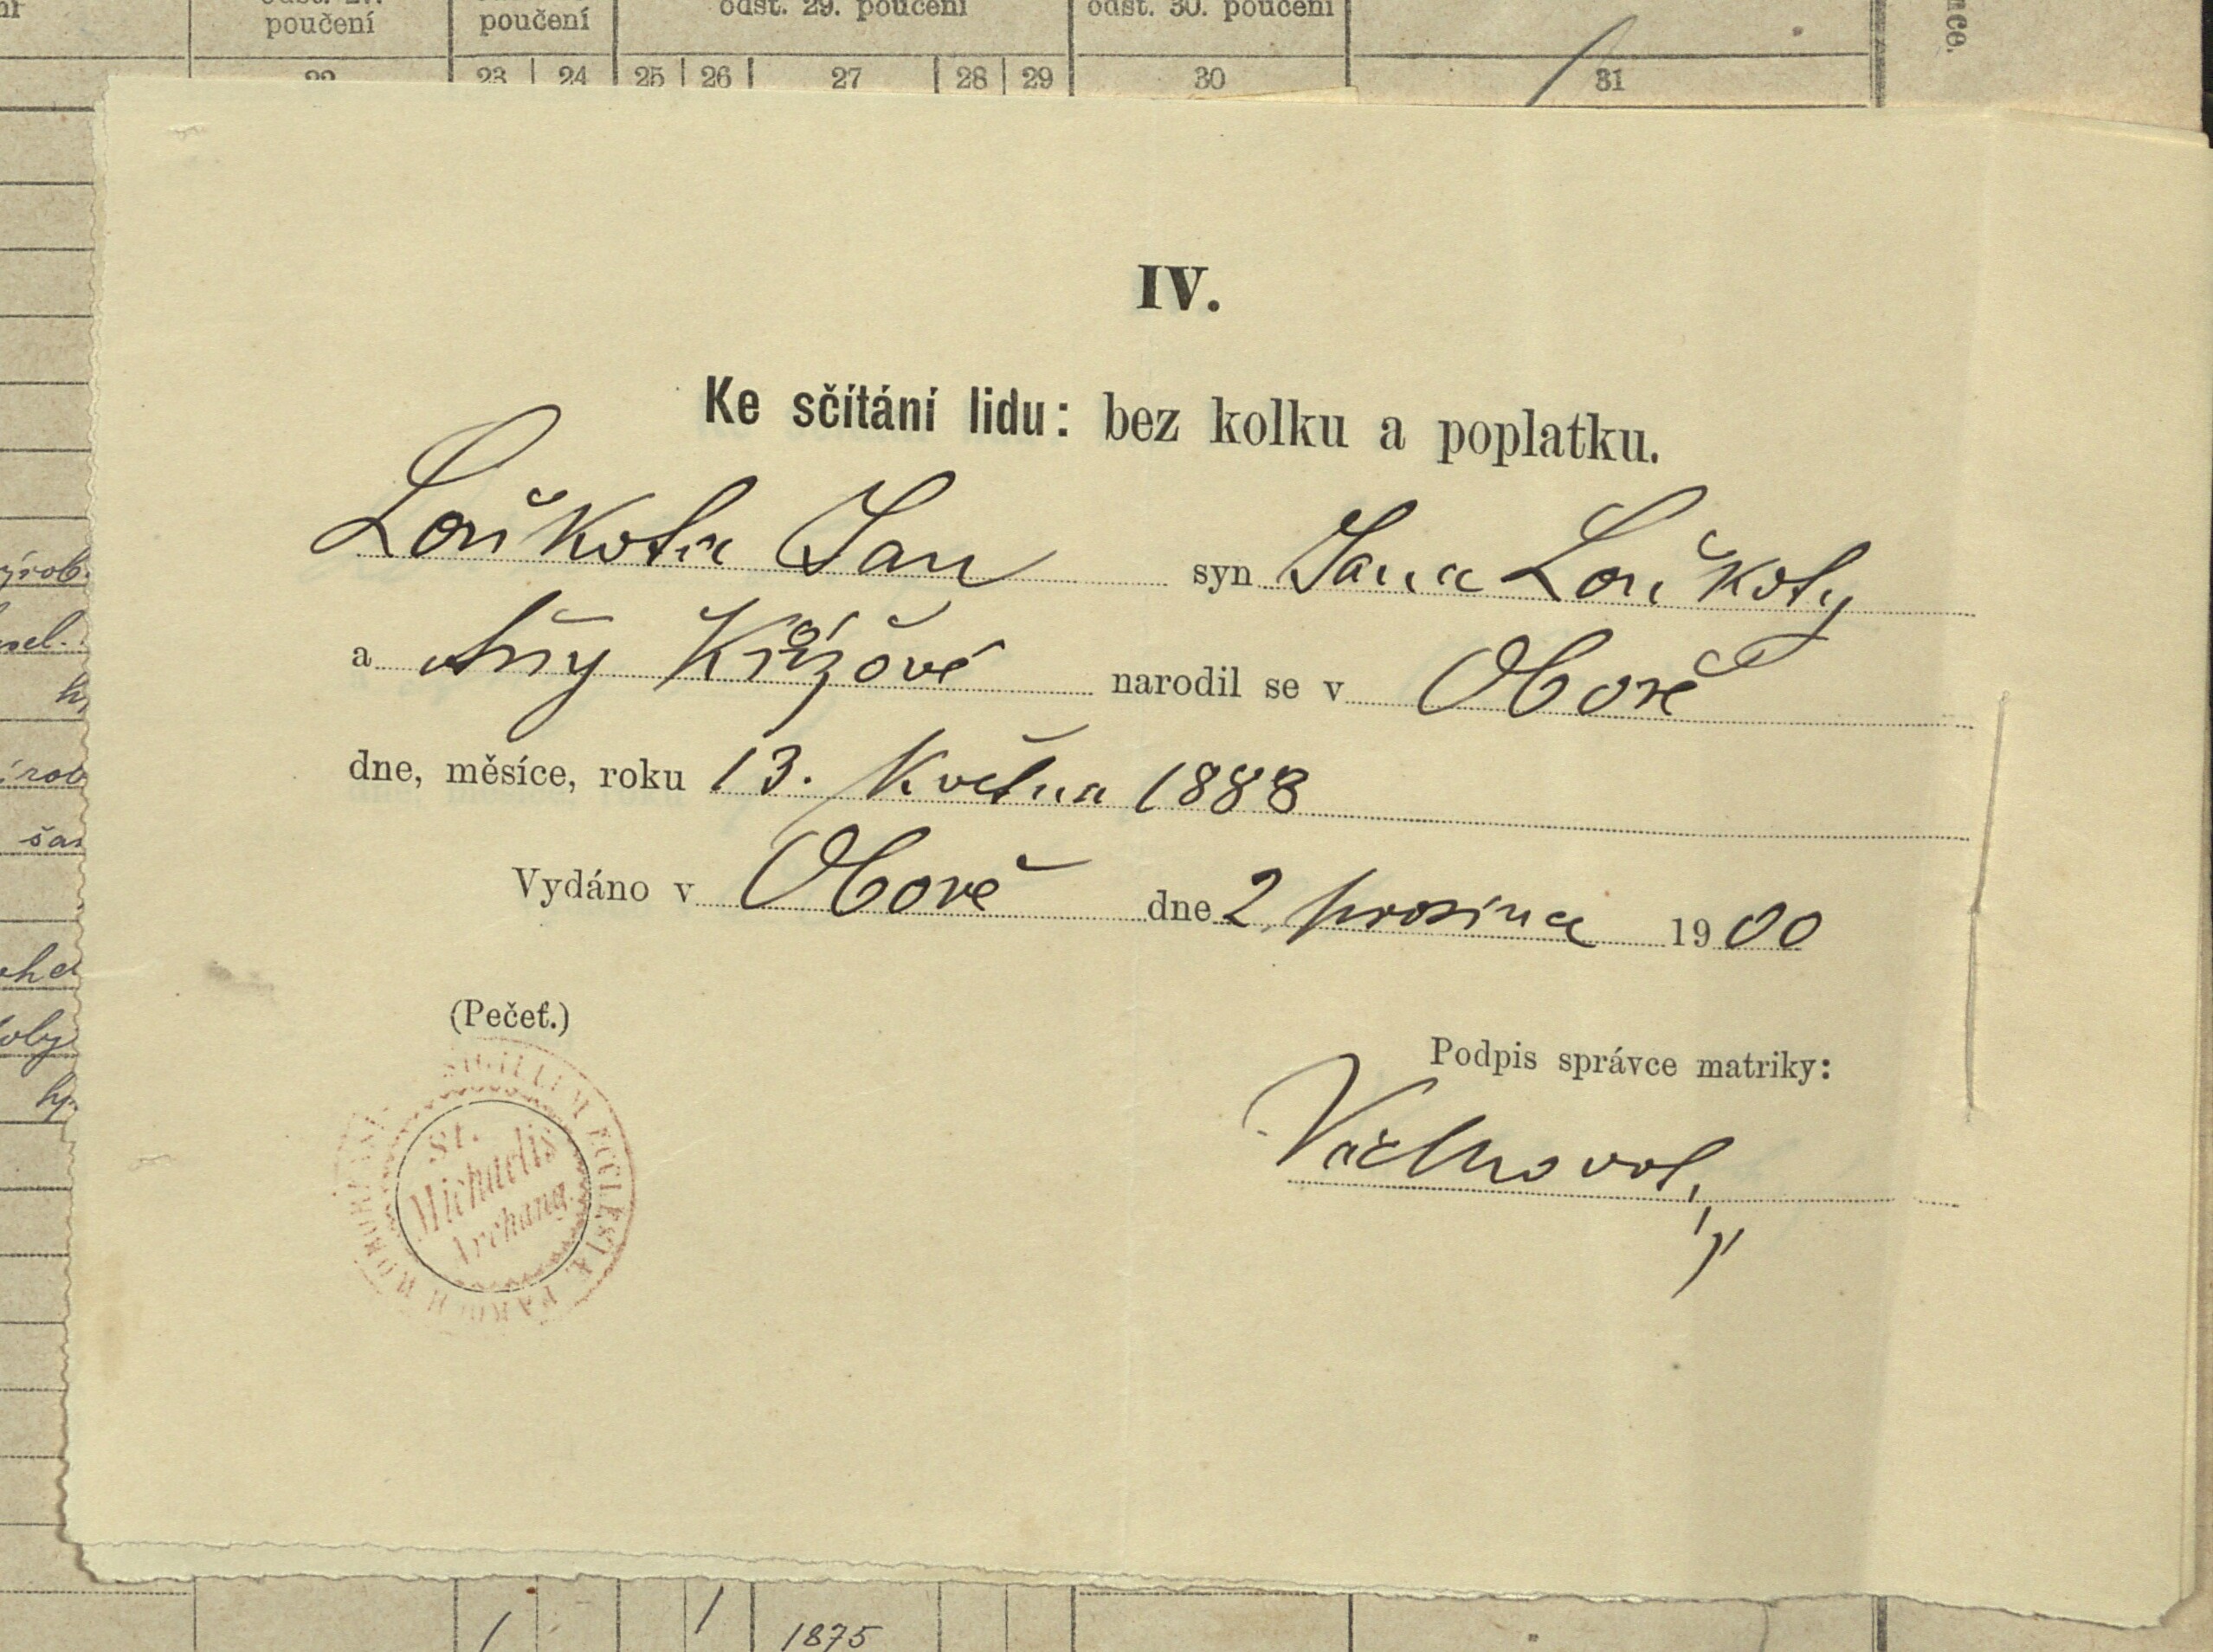 poučení poučení odst. 29. poučení odst. 30. poučení
23 24 25 26 27 28 29 30 31
IV.
Ke sčítání lidu: bez kolku a poplatku.
Loučkota Jan syn Jana Loučkoty
a Anny Křížové narodil se v Oboře
dne, měsíce, roku 13. Května 1888
Vydáno v Oboře dne 2. prosince 1900
(Pečeť.)
Podpis správce matriky:
St.
Michaelis
Archang.
SIGILLUM ECCLESIÆ PAROCH
1875